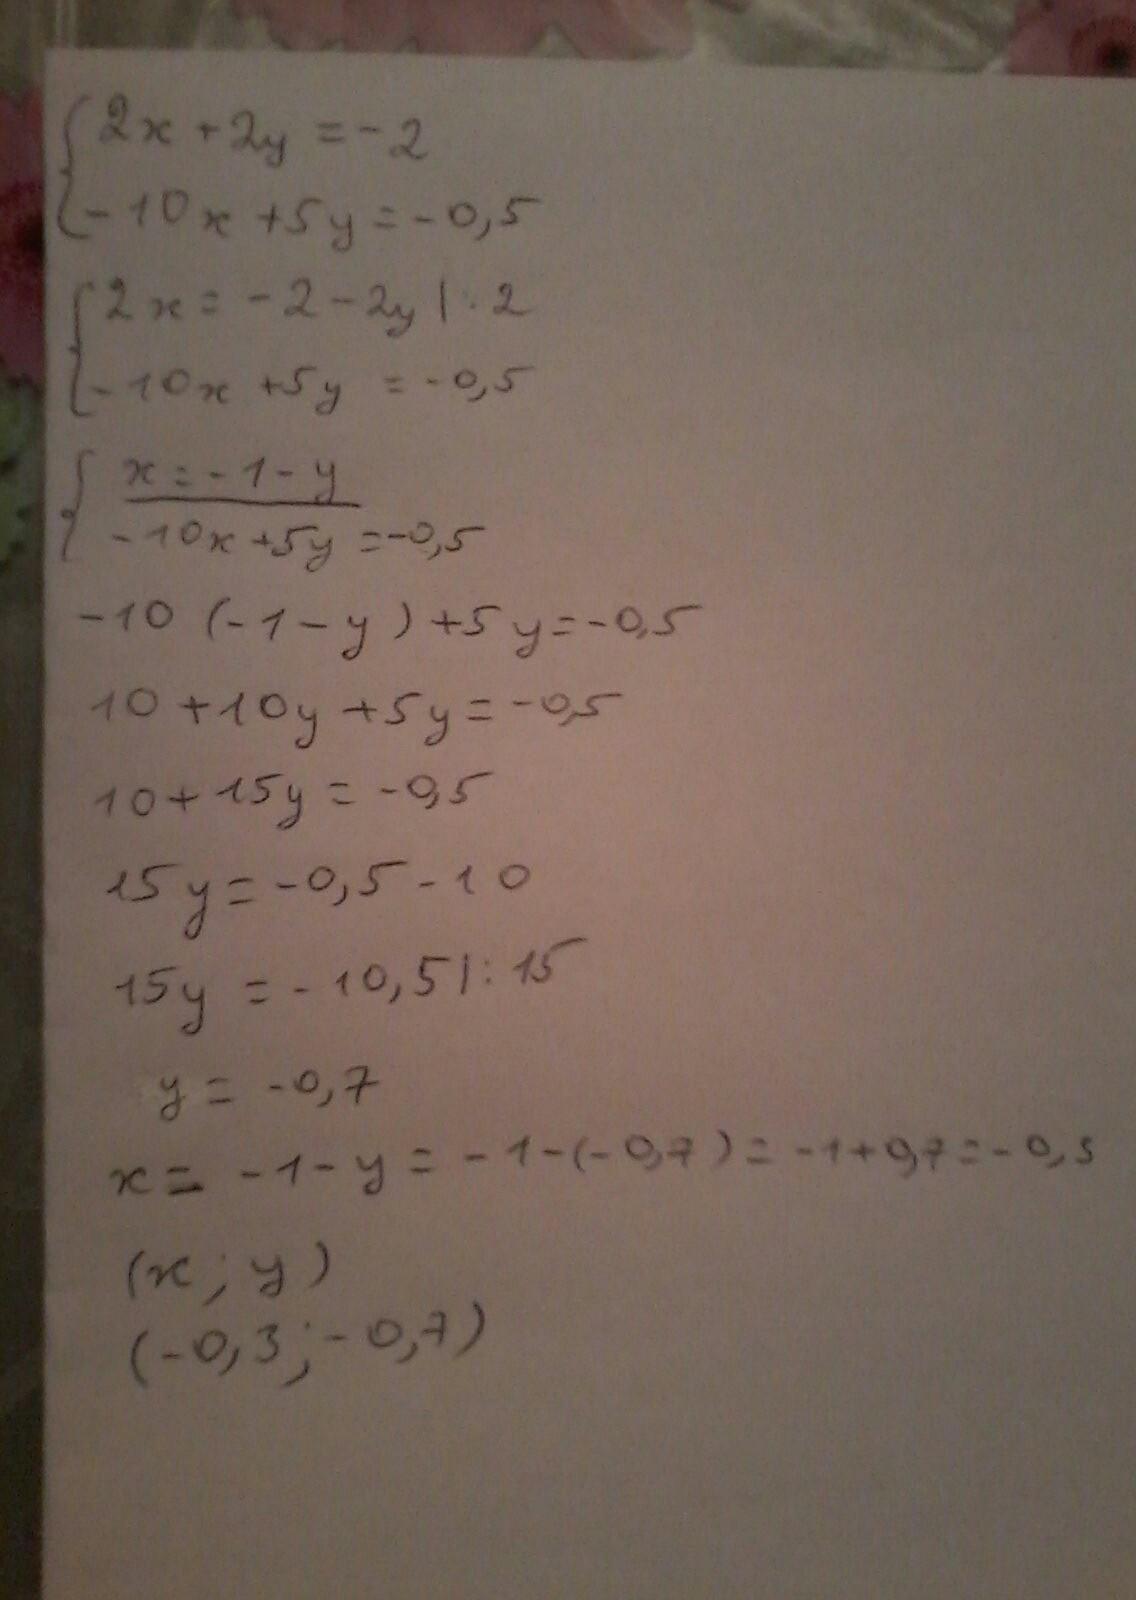 2x + 2y = -2
-10x + 5y = -0,5
2x = -2 - 2y |:2
-10x + 5y = -0,5
x = -1 - y
-10x + 5y = -0,5
-10 (-1 - y) + 5y = -0,5
10 + 10y + 5y = -0,5
10 + 15y = -0,5
15y = -0,5 - 10
15y = -10,5 |:15
y = -0,7
x = -1 - y = -1 - (-0,7) = -1 + 0,7 = -0,3
(x; y)
(-0,3; -0,7)